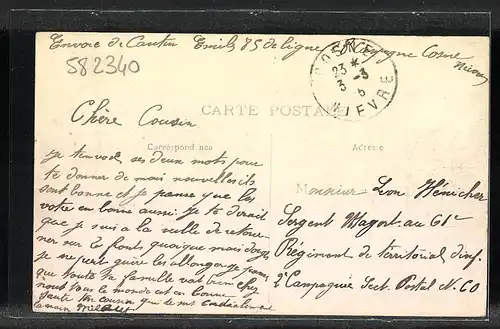 Envoie de Cantin Emile 85 de ligne Cie Campagne Cosne
Nievre
582340
COSNE
23 *
3 -3
6
NIEVRE
CARTE POSTALE
Chère Cousin
Correspondance
Adresse
Je tenvoie ses deux mots pour
te donner de mais nouvelles ils
sont bonne et je panse que les
votre en bonne aussi. Je te dirait
que je suis a la veille de retour
ner sur le front, quoique mais
je ne pert guère les
que toute ta famille vat bien chez
nout tous le monde est en bonne
santé ton cousin qui te sert cordialement
la main
Monsieur Leon Hénicher
Sergent Magort au 61e
Régiment de territorial dinf.
2e Campagnie Sect. Postal N. CO